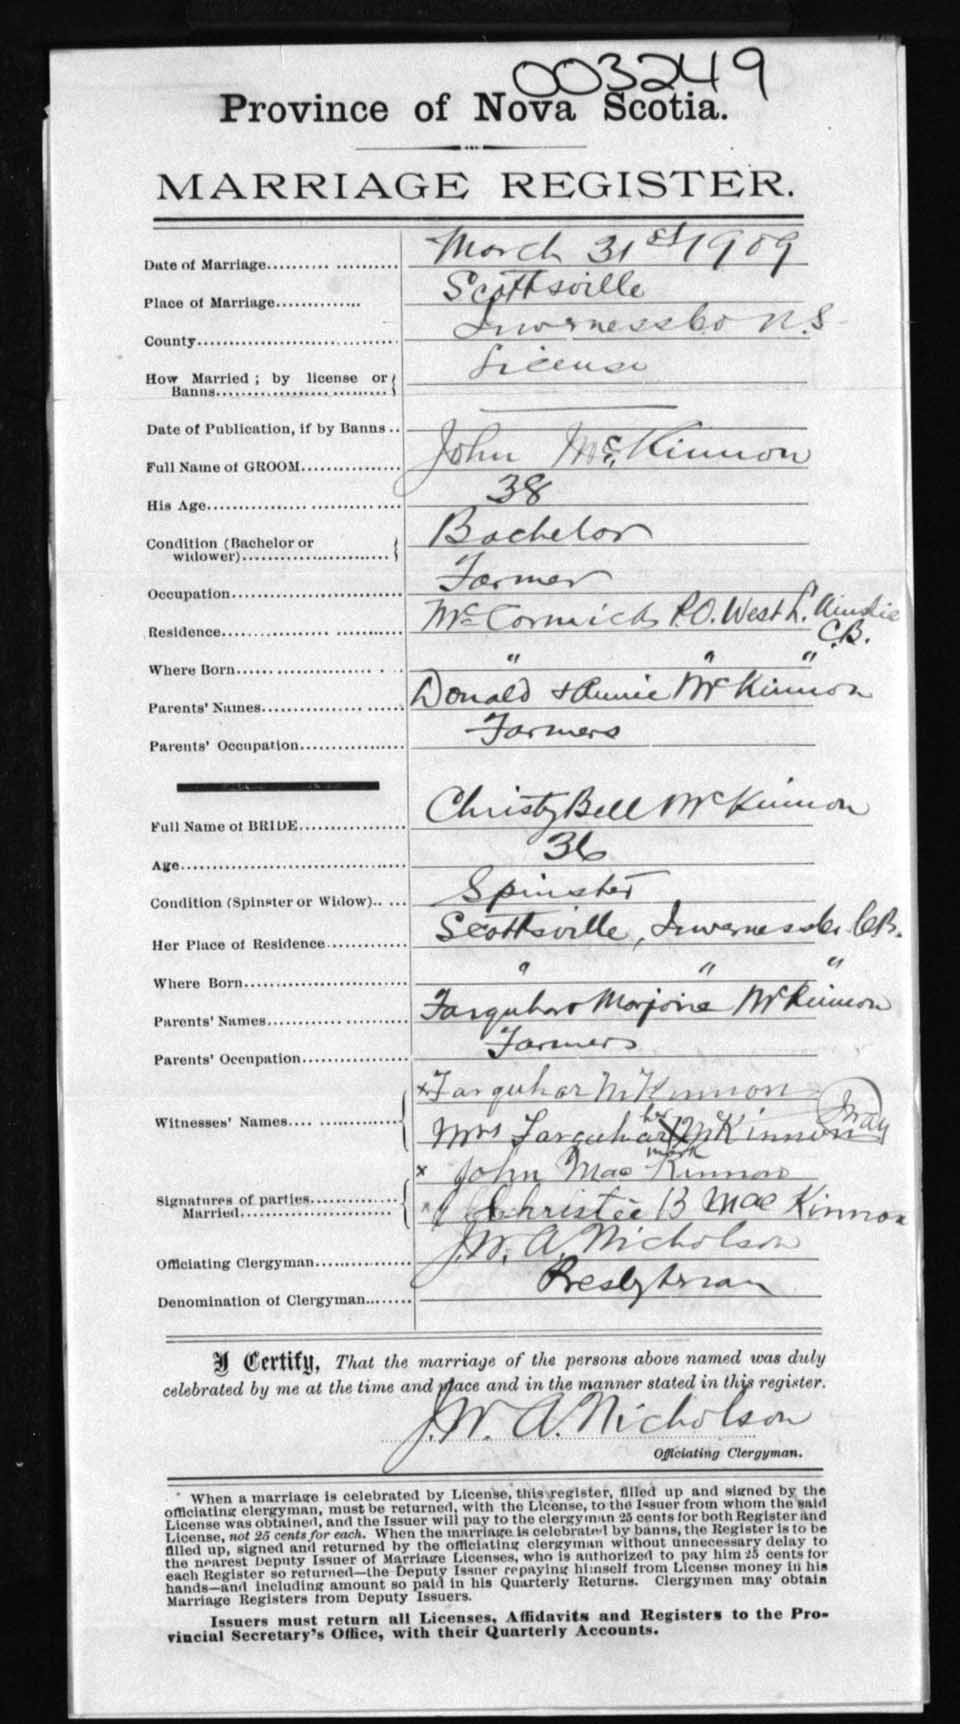 003249
Province of Nova Scotia.
MARRIAGE REGISTER.
Date of Marriage.................... March 31st 1909
Place of Marriage............. Scottsville
County.............................. Inverness Co N.S
How Married ; by license or License
Banns..........................
Date of Publication, if by Banns ..
Full Name of GROOM................ John McKinnon
His Age............................... 38
Condition (Bachelor or Bachelor
widower)........................
Occupation.......................... Farmer
Residence........................... McCormick P.O. West L. Ainslie
C.B.
Where Born......................... " " "
Parents' Names...................... Donald & Annie McKinnon
Parents' Occupation.................. Farmers
Full Name of BRIDE................ Christy Bell McKinnon
Age.................................... 36
Condition (Spinster or Widow).. ... Spinster
Her Place of Residence............. Scottsville, Inverness Co. C.B.
Where Born......................... " " "
Parents' Names...................... Farquhar Marjorie McKinnon
Parents' Occupation.................. Farmers
x Farquhar McKinnon
Witnesses' Names.... ............. Mrs Farquhar her X mark McKinnon
x John MacKinnon
Signatures of parties.............
Married....................... x Christie B MacKinnon
Officiating Clergyman............... J.W. A. Nicholson
Denomination of Clergyman........ Presbyterian
I Certify, That the marriage of the persons above named was duly
celebrated by me at the time and place and in the manner stated in this register.
J.W. A. Nicholson
Officiating Clergyman.
When a marriage is celebrated by License, this register, filled up and signed by the
officiating clergyman, must be returned, with the License, to the Issuer from whom the said
License was obtained, and the Issuer will pay to the clergyman 25 cents for both Register and
License, not 25 cents for each. When the marriage is celebrated by banns, the Register is to be
filled up, signed and returned by the officiating clergyman without unnecessary delay to
the nearest Deputy Issuer of Marriage Licenses, who is authorized to pay him 25 cents for
each Register so returned—the Deputy Issuer repaying himself from License money in his
hands—and including amount so paid in his Quarterly Returns. Clergymen may obtain
Marriage Registers from Deputy Issuers.
Issuers must return all Licenses, Affidavits and Registers to the Pro-
vincial Secretary's Office, with their Quarterly Accounts.